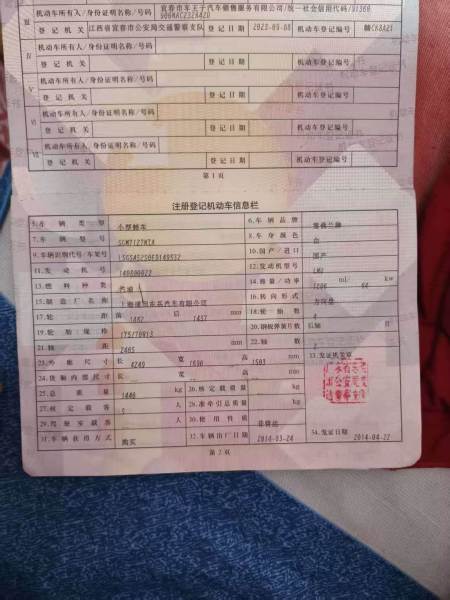 机动车所有人/身份证明名称/号码 宜春市车天下汽车销售服务有限公司/统一社会信用代码/91360
登记机关 江西省宜春市公安局交通警察支队 登记日期 2023-09-08 机动车登记编号
Ⅳ 机动车所有人/身份证明名称/号码
登记机关 登记日期 机动车登记编号
Ⅴ 机动车所有人/身份证明名称/号码
登记机关 登记日期 机动车登记编号
Ⅵ 机动车所有人/身份证明名称/号码
登记机关 登记日期 机动车登记编号
Ⅶ 机动车所有人/身份证明名称/号码
登记机关 登记日期 机动车登记编号
第1页
注册登记机动车信息栏
5.车辆类型 小型轿车 6.车辆品牌 雪佛兰牌
7.车辆型号 8.车身颜色 白
9.车辆识别代号/车架号 10.国产/进口 国产
11.发动机号 12.发动机型号
13.燃料种类 汽油 14.排量/功率 ml/ kw
15.制造厂名称 上海通用东岳汽车有限公司 16.转向形式 方向盘
17.轮距 前 后 1437 mm 18.轮胎数 4
19.轮胎规格 20.钢板弹簧片数 后轴
21.轴距 2465 mm 22.轴数 2
23.外廓尺寸 长 4249 宽 1690 高 1503 mm 33.发证机关章
24.货厢内部尺寸 长 宽 高 mm
25.总质量 1446 kg 26.核定载质量 kg
27.核定载客 5 人 28.准牵引总质量 kg
29.驾驶室载客 人 30.使用性质 非营运
31.车辆获得方式 购买 32.车辆出厂日期 2014-03-24 34.发证日期 2014-04-22
第2页